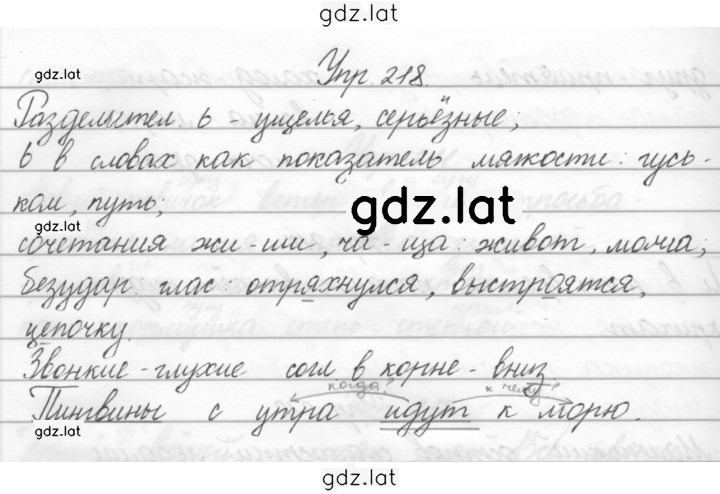 gdz.lat
gdz.lat
Упр. 218.
Разделител. ь - ущелья, серьёзные;
ь в словах как показатель мягкости: гусь-
gdz.lat
ком, путь;
gdz.lat
сочетания жи-ши, ча-ща: живот, молча;
безудар. глас: отряхнулся, выстроятся,
цепочку.
gdz.lat
Звонкие - глухие согл в корне - вниз.
когда? к чему?
Пингвины с утра идут к морю.
gdz.lat
gdz.lat